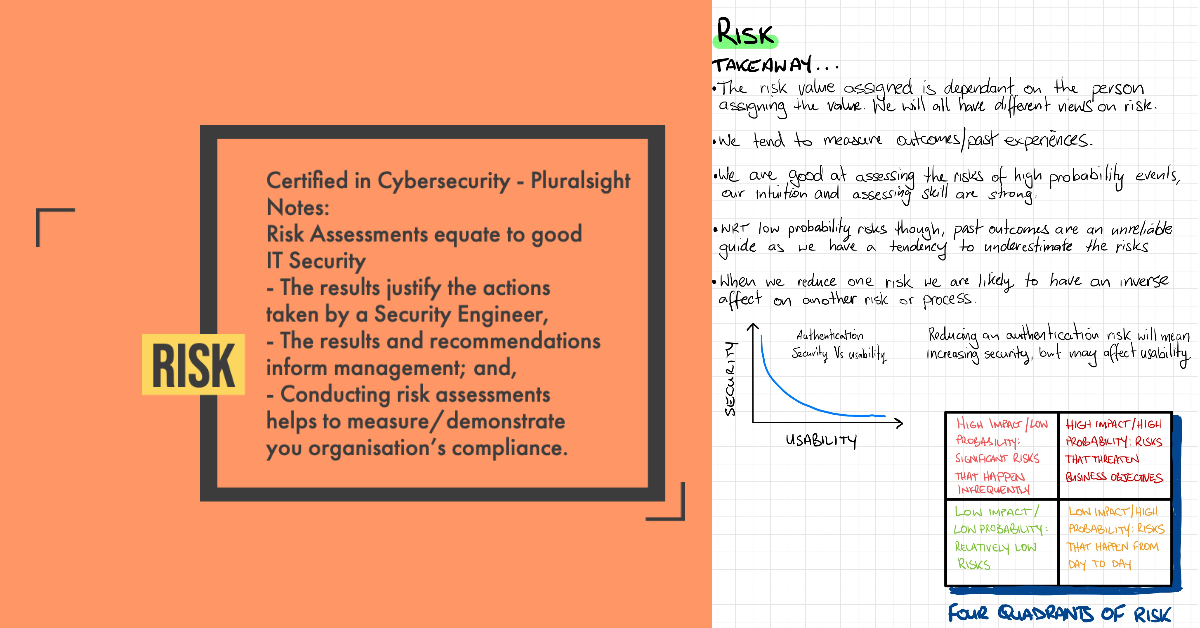 RISK
Certified in Cybersecurity - Pluralsight
Notes:
Risk Assessments equate to good
IT Security
- The results justify the actions
taken by a Security Engineer,
- The results and recommendations
inform management; and,
- Conducting risk assessments
helps to measure/demonstrate
you organisation's compliance.
RISK
TAKEAWAY...
•The risk value assigned is dependant on the person
assigning the value. We will all have different views on risk.
•We tend to measure outcomes/past experiences.
•We are good at assessing the risks of high probability events,
our intuition and assessing skill are strong.
•WRT low probability risks though, past outcomes are an unreliable
guide as we have a tendency to underestimate the risks
•When we reduce one risk we are likely to have an inverse
affect on another risk or process.
Authentication
Security Vs usability
SECURITY
USABILITY
Reducing an authentication risk will mean
increasing security, but may affect usability.
HIGH IMPACT/LOW
PROBABILITY:
SIGNIFICANT RISKS
THAT HAPPEN
INFREQUENTLY
HIGH IMPACT/HIGH
PROBABILITY: RISKS
THAT THREATEN
BUSINESS OBJECTIVES
LOW IMPACT/
LOW PROBABILITY:
RELATIVELY LOW
RISKS
LOW IMPACT/HIGH
PROBABILITY: RISKS
THAT HAPPEN FROM
DAY TO DAY
FOUR QUADRANTS OF RISK